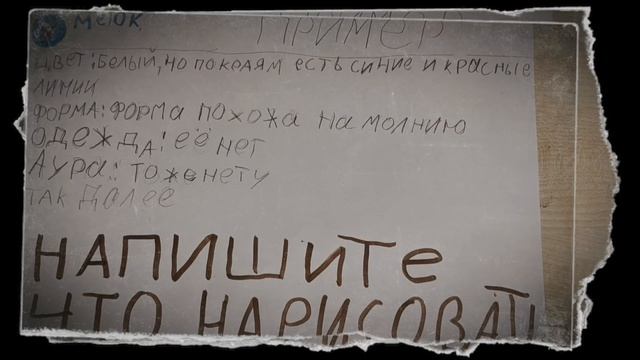 Мелок ПРИМЕР
ЦВЕТ: БЕЛЫЙ, НО ПО КРАЯМ ЕСТЬ СИНИЕ И КРАСНЫЕ
ЛИНИИ
ФОРМА: ФОРМА ПОХОЖА НА МОЛНИЮ
ОДЕЖДА: ЕЁ НЕТ
АУРА: ТОЖЕ НЕТУ
ТАК ДАЛЕЕ
НАПИШИТЕ
ЧТО НАРИСОВАТЬ